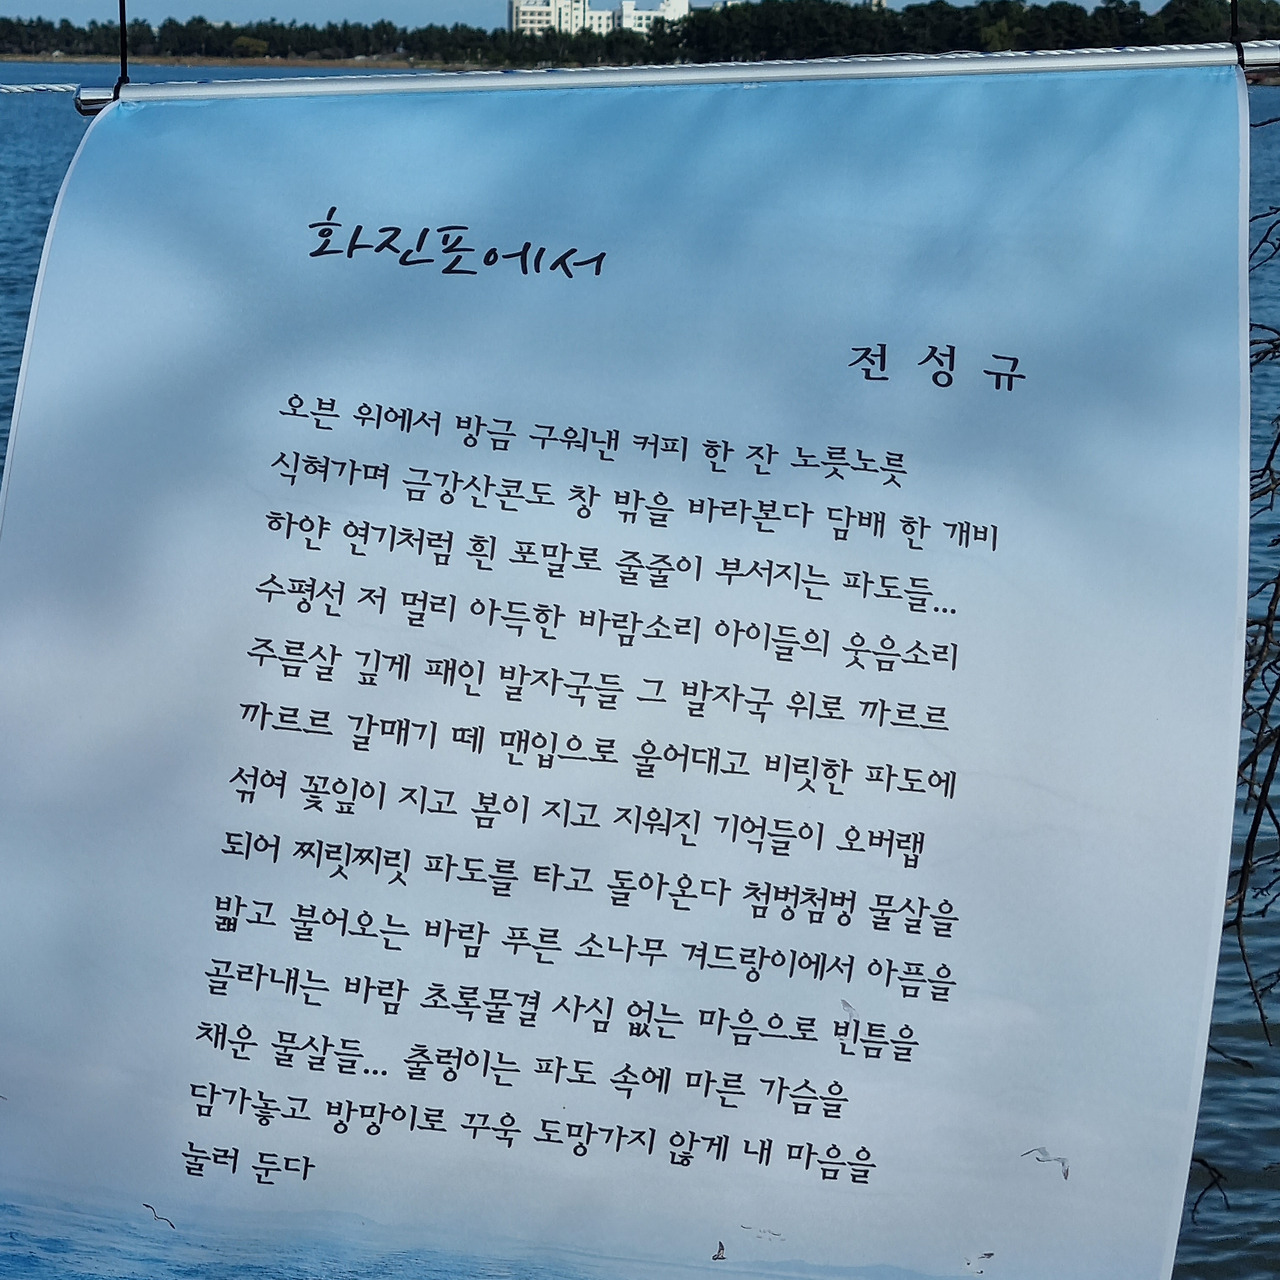 화진포에서
전 성 규
오븐 위에서 방금 구워낸 커피 한 잔 노릇노릇
식혀가며 금강산콘도 창 밖을 바라본다 담배 한 개비
하얀 연기처럼 흰 포말로 줄줄이 부서지는 파도들...
수평선 저 멀리 아득한 바람소리 아이들의 웃음소리
주름살 깊게 패인 발자국들 그 발자국 위로 까르르
까르르 갈매기 떼 맨입으로 울어대고 비릿한 파도에
섞여 꽃잎이 지고 봄이 지고 지워진 기억들이 오버랩
되어 찌릿찌릿 파도를 타고 돌아온다 첨벙첨벙 물살을
밟고 불어오는 바람 푸른 소나무 겨드랑이에서 아픔을
골라내는 바람 초록물결 사심 없는 마음으로 빈틈을
채운 물살들... 출렁이는 파도 속에 마른 가슴을
담가놓고 방망이로 꾸욱 도망가지 않게 내 마음을
눌러 둔다